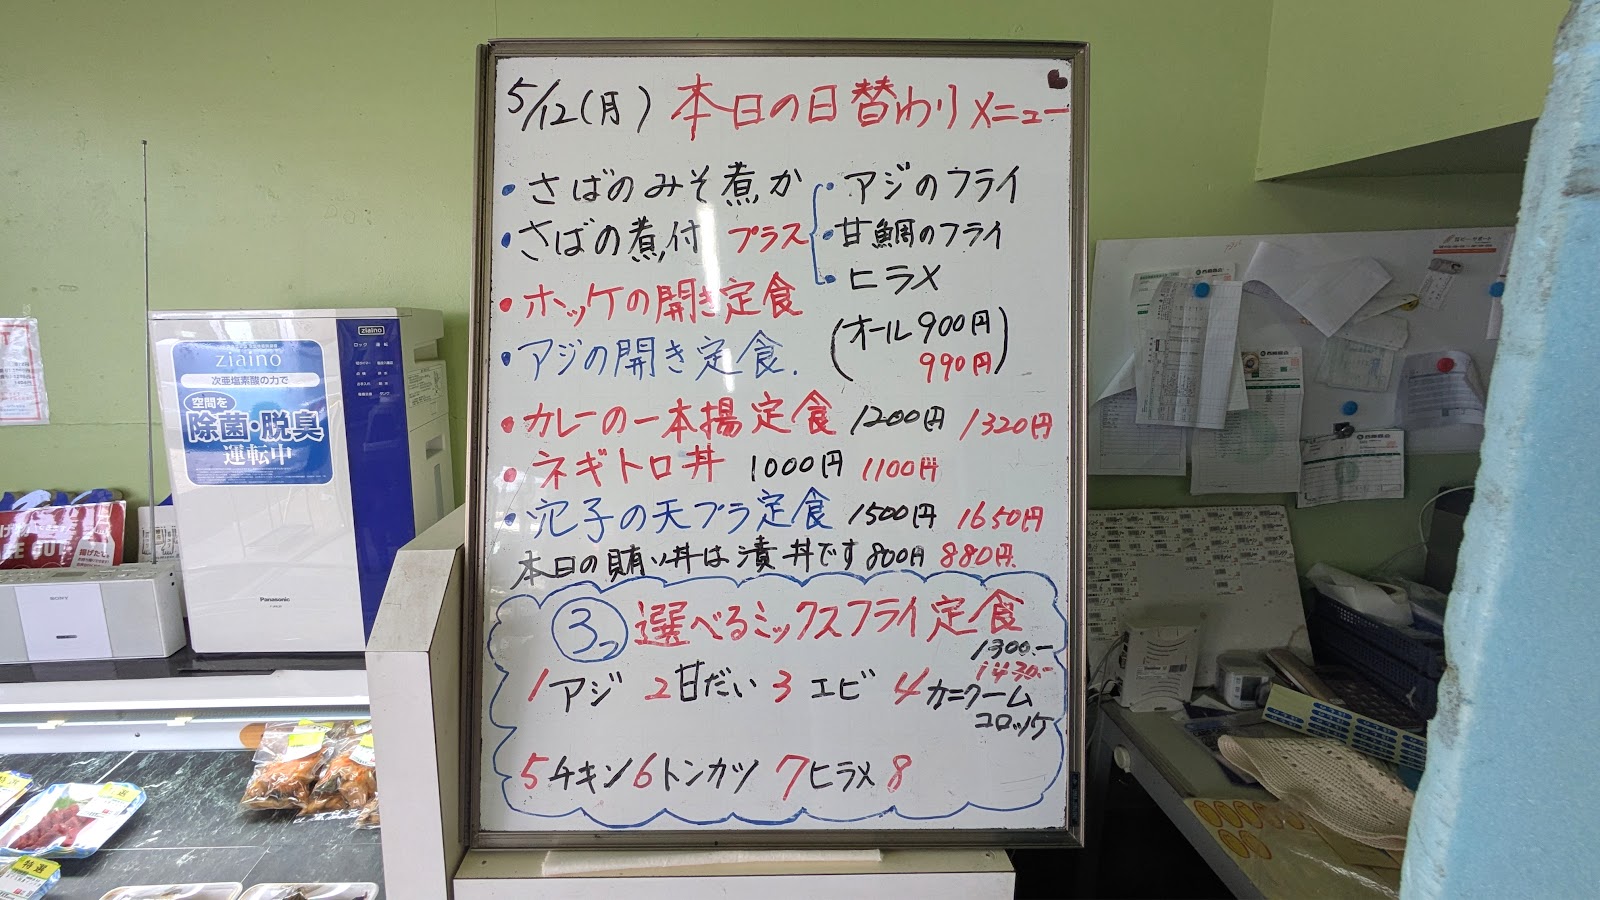 5/12(月) 本日の日替わりメニュー
・さばのみそ煮か
・さばの煮付 プラス
・アジのフライ
・甘鯛のフライ
・ヒラメ
・ホッケの開き定食
・アジの開き定食.
(オール900円
990円)
・カレーの一本揚定食 1200円 1320円
・ネギトロ丼 1000円 1100円
・穴子の天プラ定食 1500円 1650円
本日の賄い丼は漬丼です800円 880円.
3つ 選べるミックスフライ定食
1300.-
1430.-
1 アジ 2 甘だい 3 エビ 4 カニクーム
コロッケ
5 チキン 6 トンカツ 7 ヒラメ 8
ziaino
ziaino
次亜塩素酸の力で
空間を
除菌・脱臭
運転中
ロック 運転
Panasonic
SONY
特選